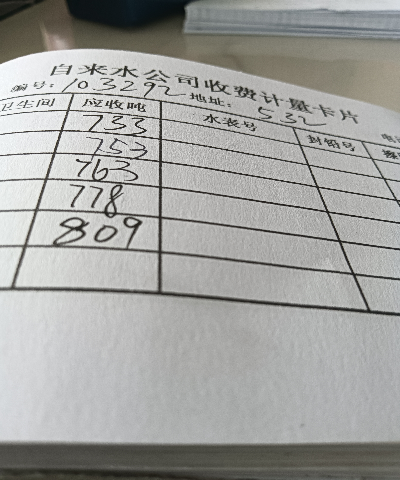 自来水公司收费计量卡片
编号:103292 地址: 532
卫生间 应收吨 水表号 封铅号
733
753
763
778
809